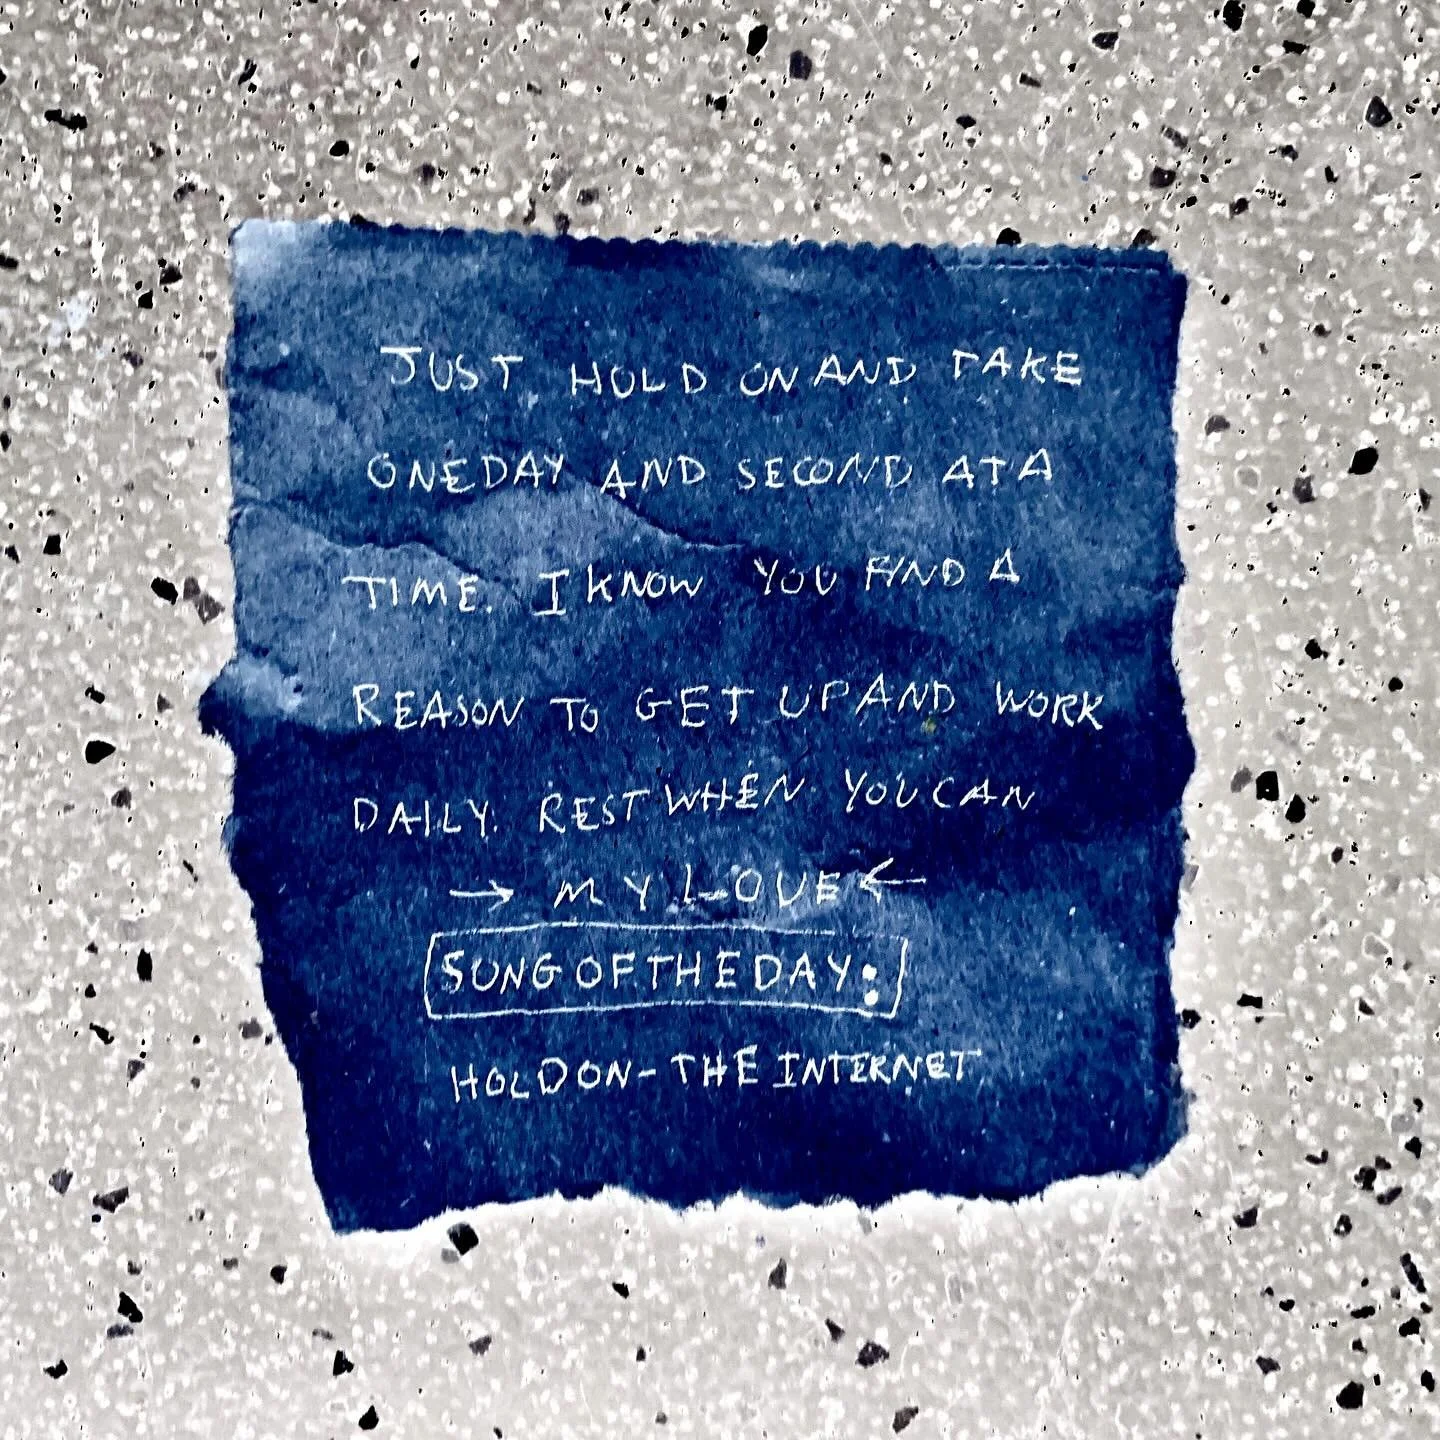 JUST HOLD ON AND TAKE
ONE DAY AND SECOND AT A
TIME. I KNOW YOU FIND A
REASON TO GET UP AND WORK
DAILY. REST WHEN YOU CAN
→ MY LOVE ←
SONG OF THE DAY:
HOLD ON - THE INTERNET